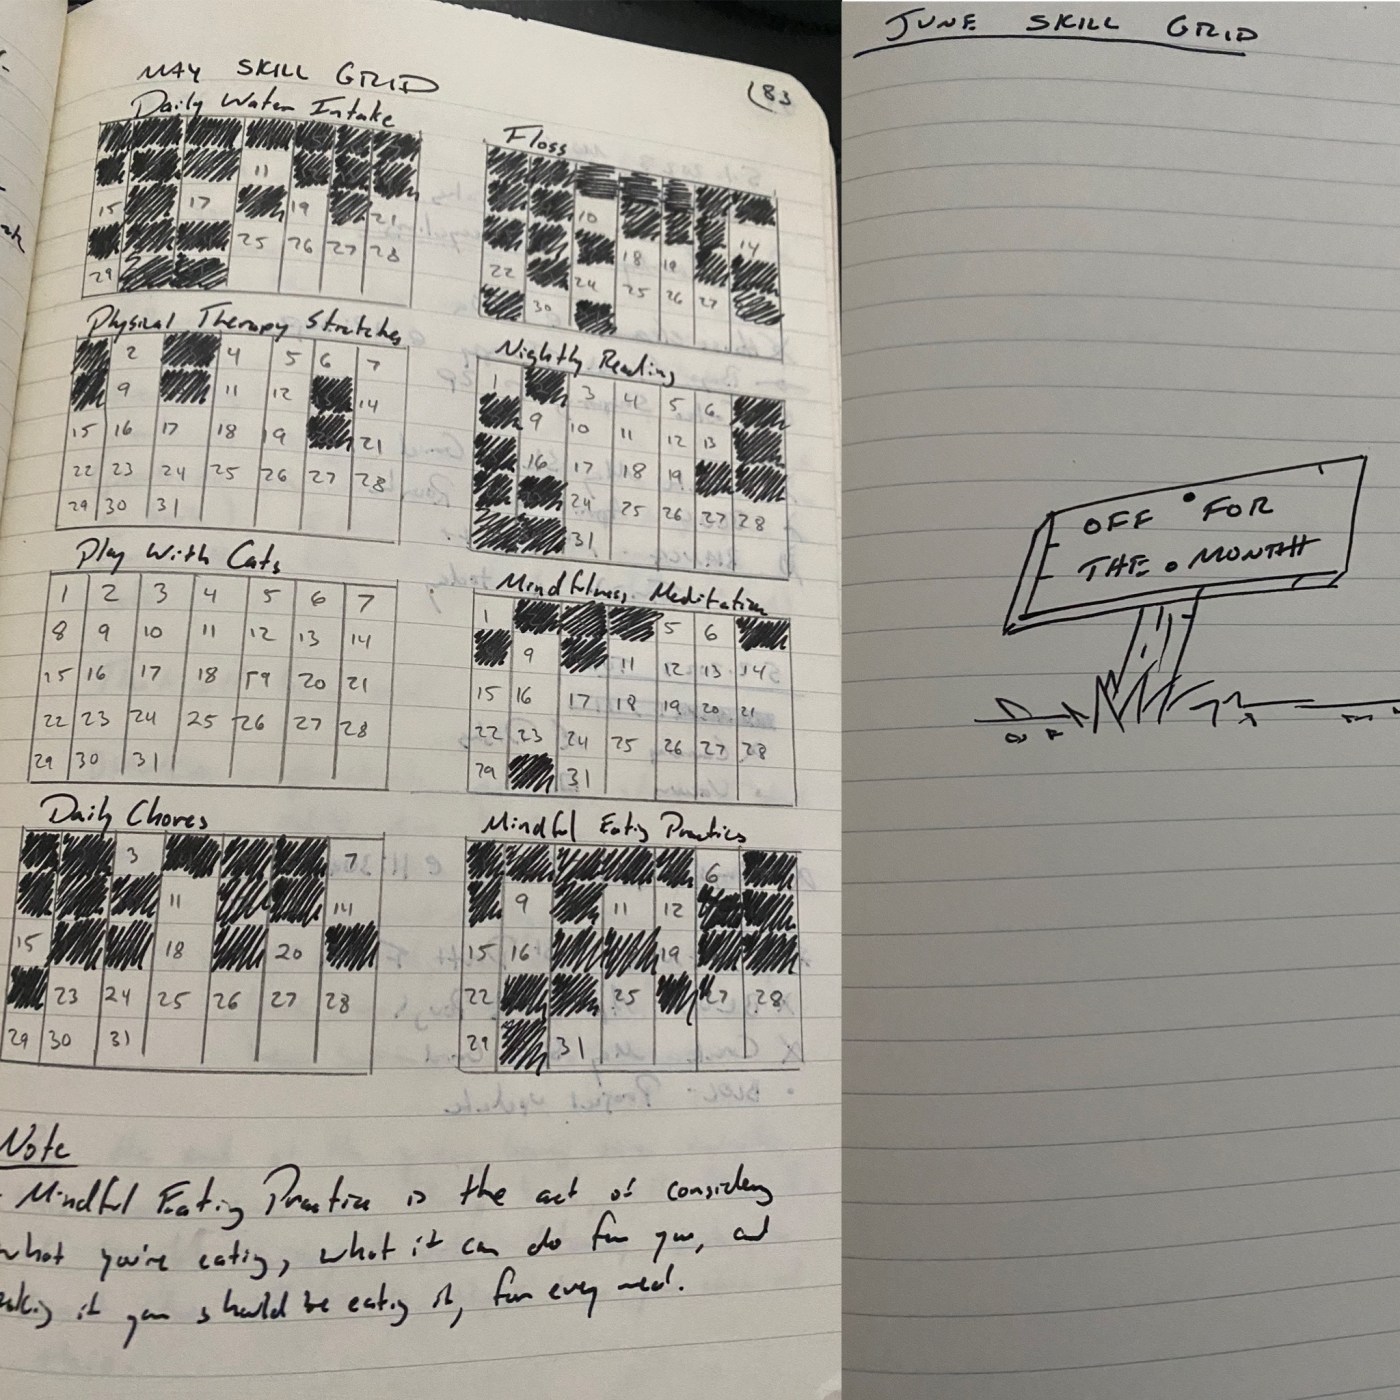 MAY SKILL GRID
83
Daily Water Intake
11
15 17 19 21
25 26 27 28
29
Floss
10
14
18 19
22 24 25 26 27
30
Physical Therapy Stretches
2 4 5 6 7
9 11 12 14
15 16 17 18 19 21
22 23 24 25 26 27 28
29 30 31
Nightly Reading
1 3 4 5 6
9 10 11 12 13
16 17 18 19
24 25 26 27 28
31
Play With Cats
1 2 3 4 5 6 7
8 9 10 11 12 13 14
15 16 17 18 19 20 21
22 23 24 25 26 27 28
29 30 31
Mindfulness Meditation
1 5 6
9 11 12 13 14
15 16 17 18 19 20 21
22 23 24 25 26 27 28
29 31
Daily Chores
3 7
11 14
15 18 20
23 24 25 26 27 28
29 30 31
Mindful Eating Practice
6
9 11 12
15 16 19
22 25 27 28
29 31
Note
Mindful Eating Practice is the act of considering
what you're eating, what it can do for you, and
if you should be eating it, for every meal.
JUNE SKILL GRID
OFF FOR
THE MONTH